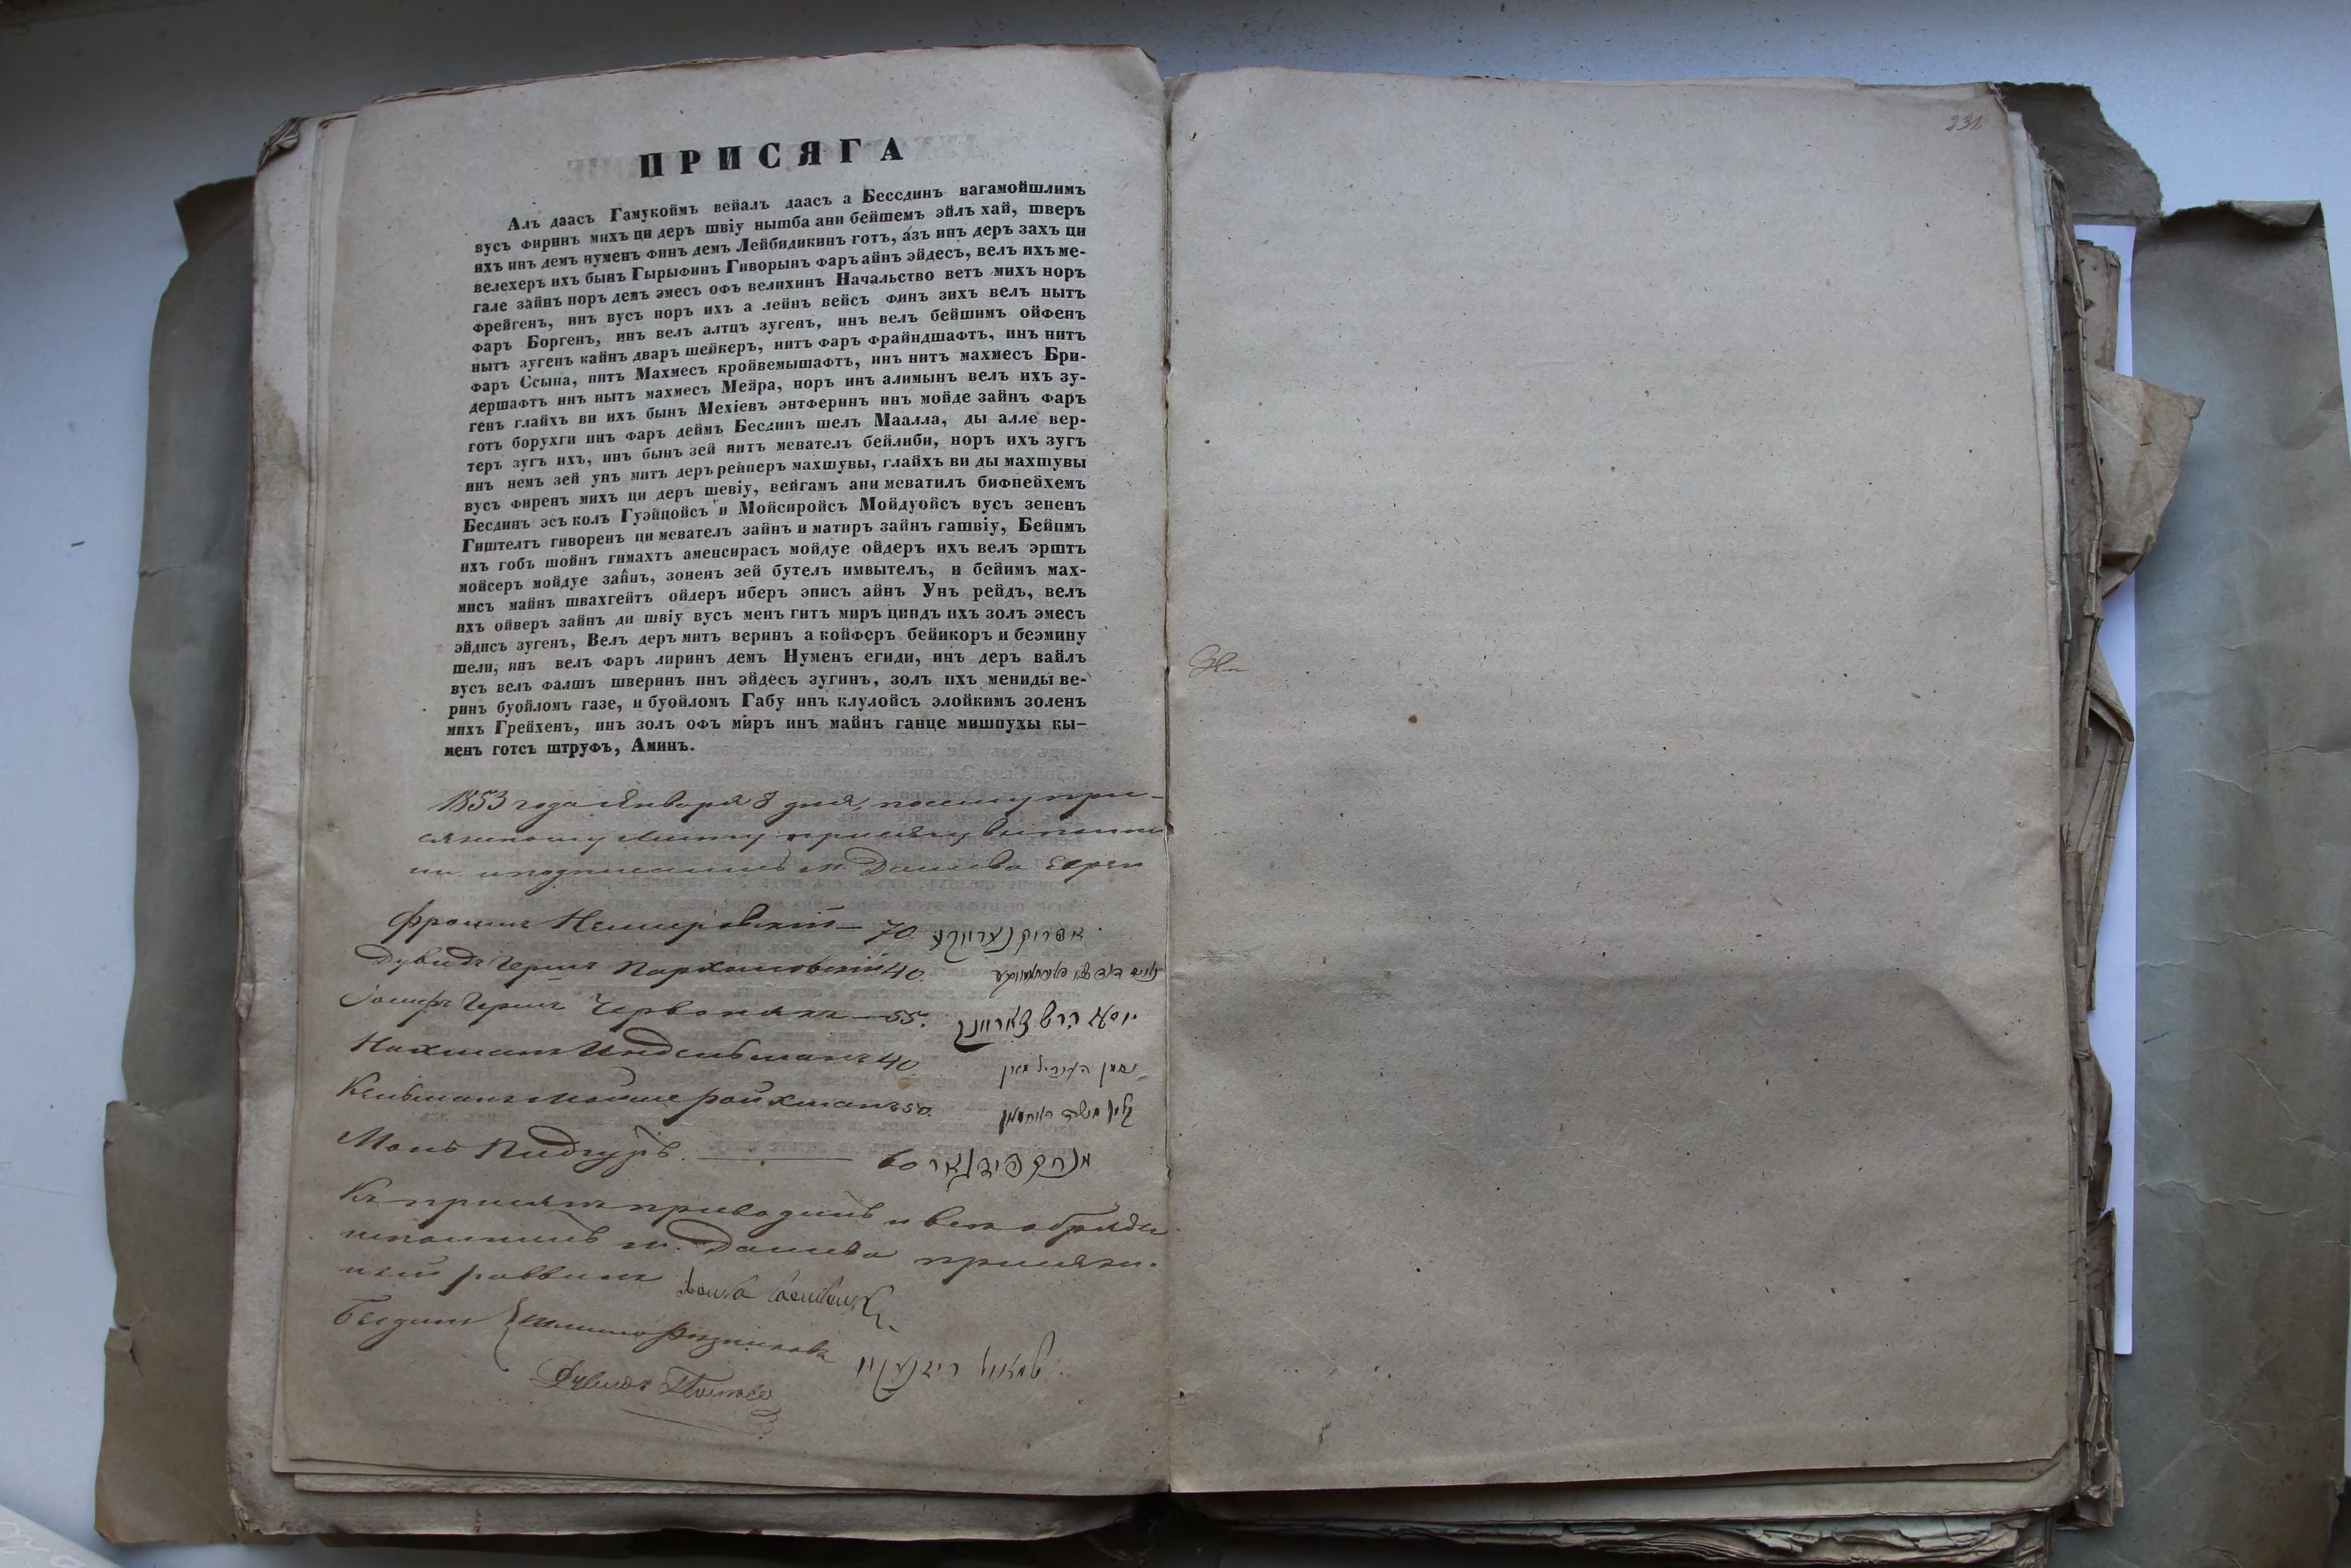 ПРИСЯГА
Алъ даасъ Гамукоймъ вейалъ даасъ а Бессдинъ вагамойшлимъ
вусъ фиринъ михъ ци деръ швіу нышба ани бейшемъ эйлъ хай, шверъ
ихъ инъ демъ нуменъ финъ демъ Лейбидикинъ готъ, а́зъ инъ деръ захъ ци
велехеръ ихъ бынъ Гырыфинъ Гиворынъ фаръ айнъ эйдесъ, велъ ихъ ме-
гале зайнъ норъ демъ эмесъ офъ велихинъ Начальство ветъ михъ норъ
фрейгенъ, инъ вусъ норъ ихъ а лейнъ вейсъ финъ зихъ велъ нытъ
фаръ Боргенъ, инъ велъ алтцъ зугенъ, инъ велъ бейшимъ ойфенъ
нытъ зугенъ кайнъ дваръ шейкеръ, нитъ фаръ фрайндшафтъ, инъ нитъ
фаръ Ссына, нитъ Махмесъ кройвемышафтъ, инъ нитъ махмесъ Бри-
дершафтъ инъ нытъ махмесъ Мейра, норъ инъ алимынъ велъ ихъ зу-
генъ глайхъ ви ихъ бынъ Мехіевъ энтферинъ инъ мойде зайнъ фаръ
готъ борухги инъ фаръ деймъ Бесдинъ шелъ Маалла, ды алле вер-
теръ зугъ ихъ, инъ бынъ зей нитъ мевателъ бейлиби, норъ ихъ зугъ
инъ немъ зей унъ митъ деръ рейнеръ махшувы, глайхъ ви ды махшувы
вусъ фиренъ михъ ци деръ шевіу, вейгамъ ани меватилъ бифнейхемъ
Бесдинъ эсъ колъ Гуэйцойсъ и Мойсиройсъ Мойдуойсъ вусъ зененъ
Гиштелтъ гиворенъ ци мевателъ зайнъ и матиръ зайнъ гашвіу, Бейимъ
ихъ гобъ шойнъ гимахтъ аменсирасъ мойдуе ойдеръ ихъ велъ эрштъ
мойсеръ мойдуе зайнъ, зоненъ зей бутелъ имвытелъ, и бейимъ мах-
мисъ майнъ швахгейтъ ойдеръ иберъ эписъ айнъ Унъ рейдъ, велъ
ихъ ойверъ зайнъ ди швіу вусъ менъ гитъ миръ циндъ ихъ золъ эмесъ
эйдисъ зугенъ, Велъ деръ митъ веринъ а койферъ бейикоръ и беэмину
шели, инъ велъ фаръ лиринъ демъ Нуменъ егиди, инъ деръ вайлъ
вусъ велъ фалшъ шверинъ инъ эйдесъ зугинъ, золъ ихъ мениды ве-
ринъ буойломъ газе, и буойломъ Габу инъ клулойсъ элойкимъ золенъ
михъ Грейхенъ, инъ золъ офъ миръ инъ майнъ ганце мишпухы кы-
менъ готсъ штруфъ, Аминъ.
1853 года Января 8 дня, посему при-
сяжному листу присягу выполни
ли и подписались м. Дашева Евреи
Фроимъ Немировскій — 70.
Дувидъ Гершъ Пархомовскій 40.
Іосифъ Гершъ Червонякъ — 55. יוסף הרש
Нахманъ 40 נחמן
Кельманъ Мойше Ройхманъ 50.
60
Къ присягѣ приводилъ и всѣ обряды
исполнилъ м. Дашева присяж-
ный раввинъ
Бесдинъ Шмило Рѣзниковъ
Дувидъ
231